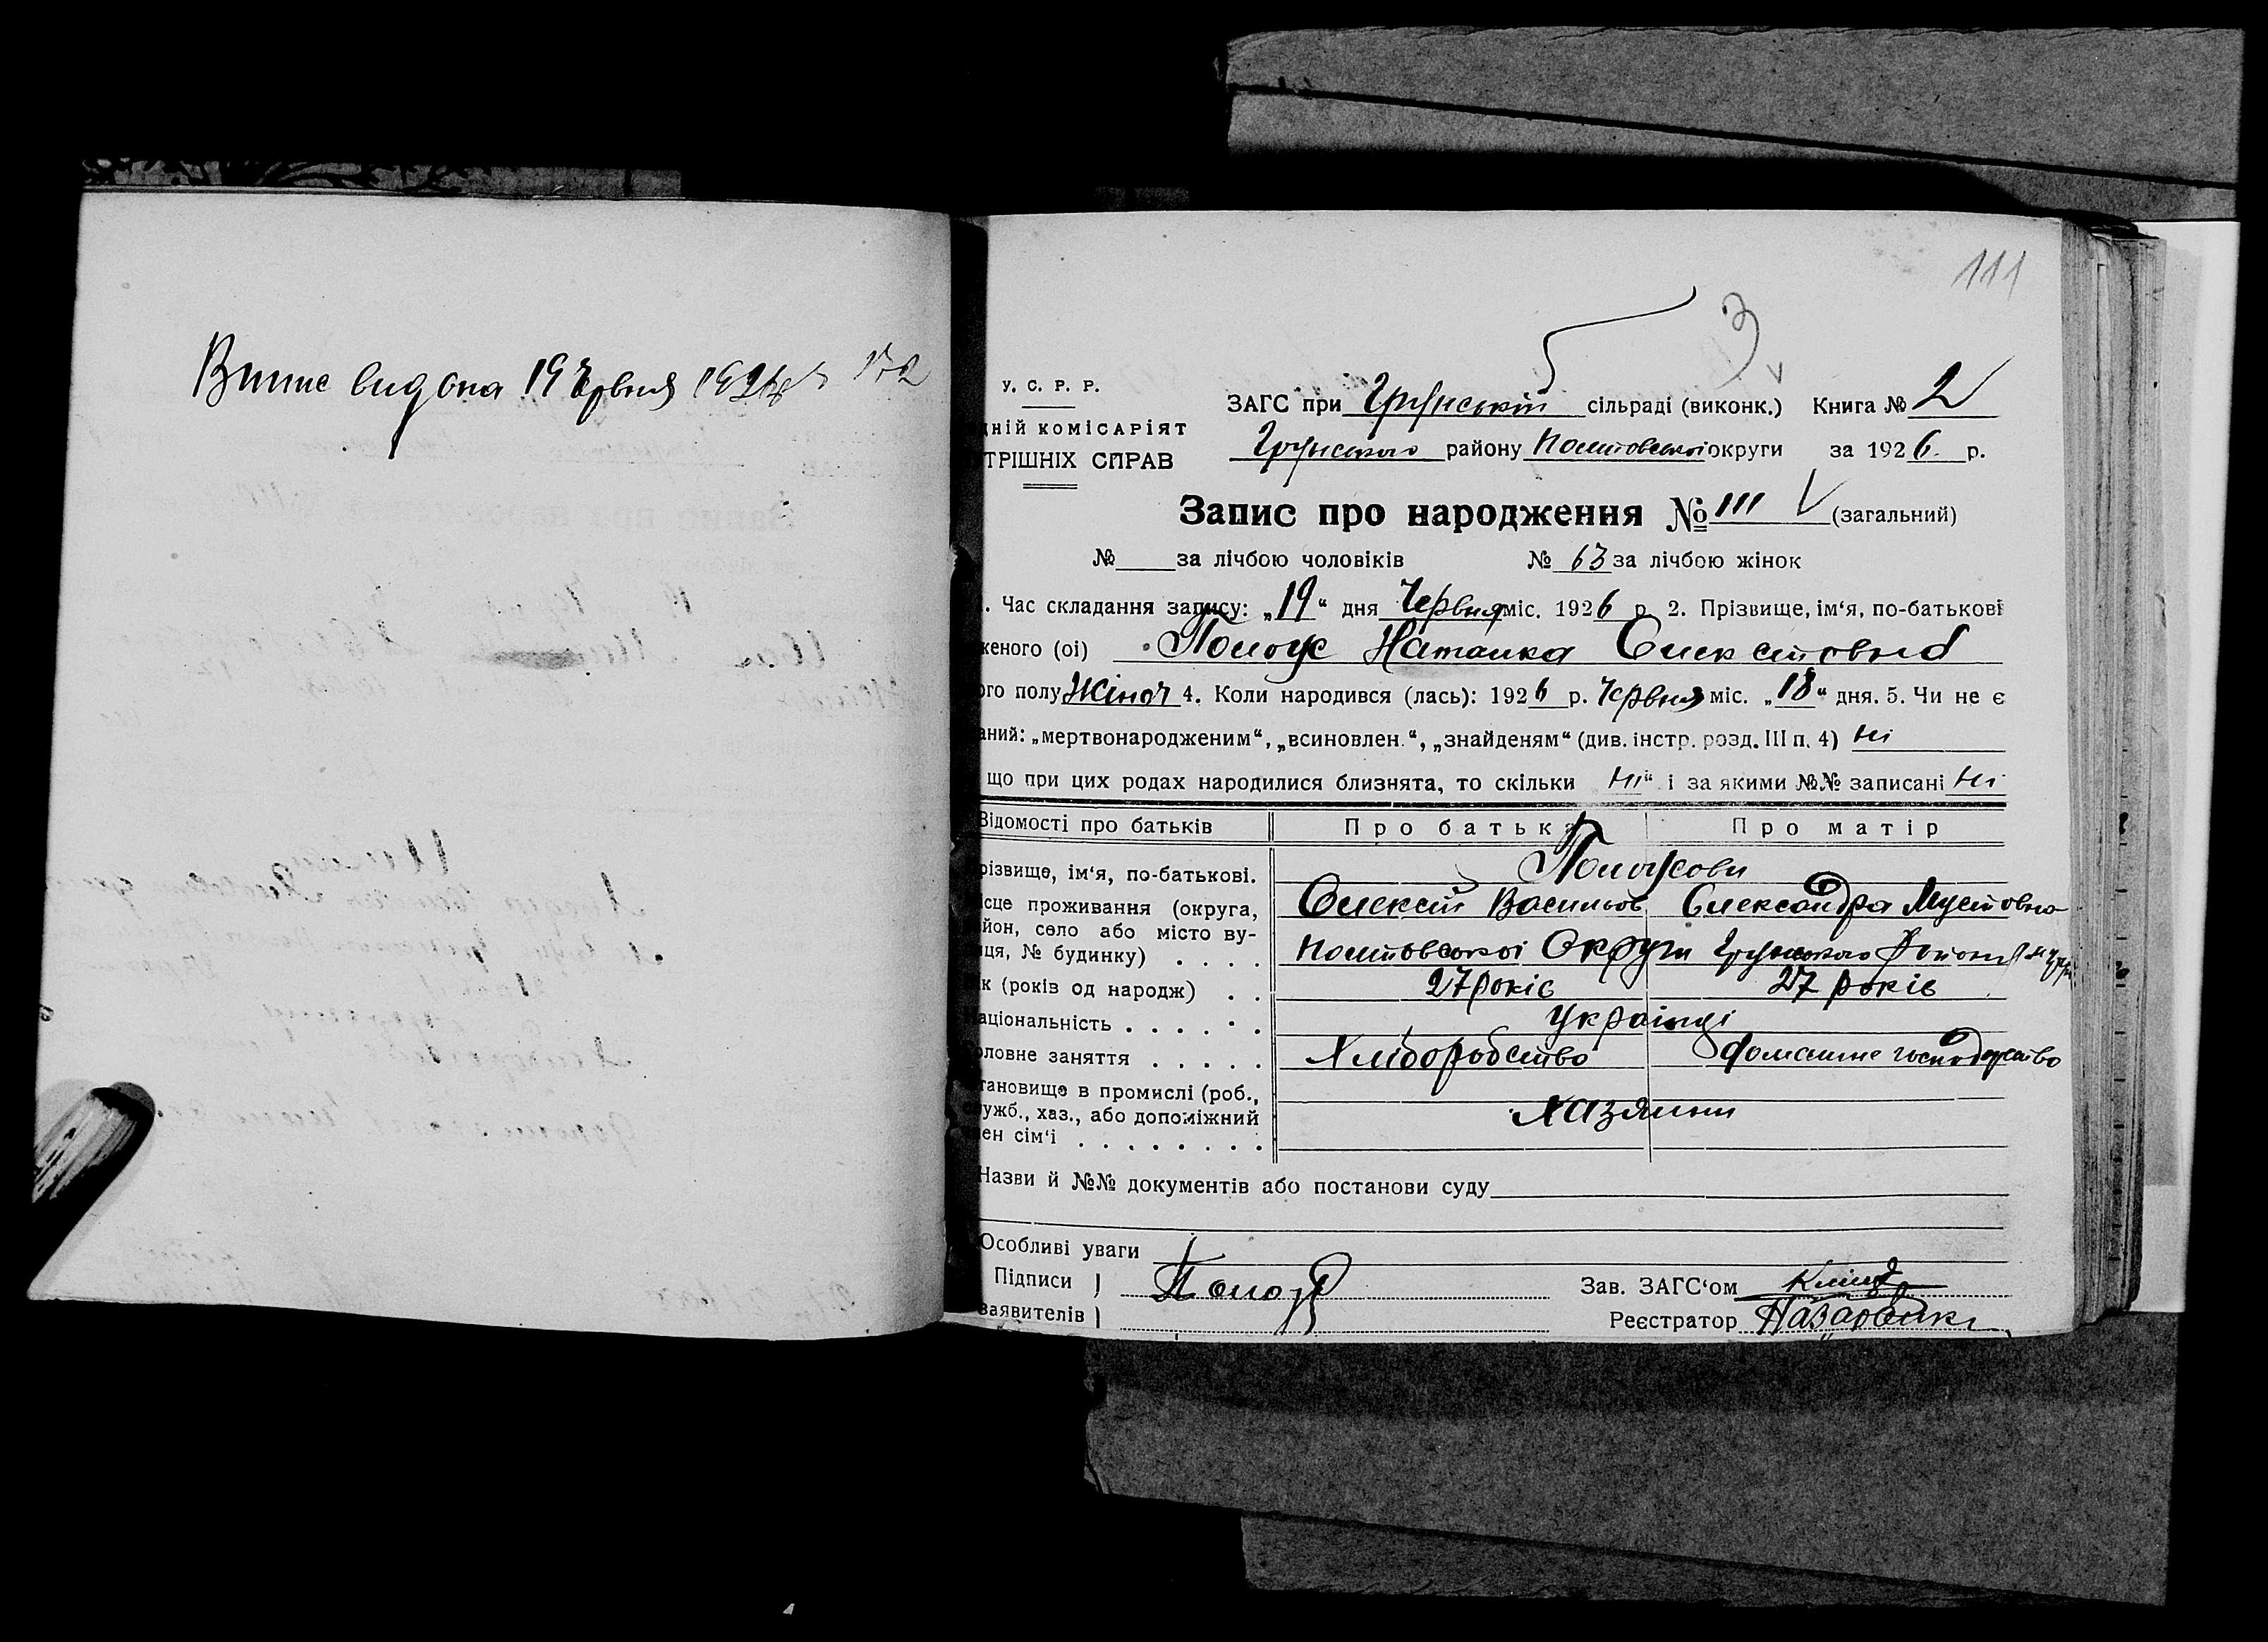 Випис видана 19 Червня 1926 р
111
3
У. С. Р. Р.
ЗАГС при Грунській сільраді (виконк.) Книга № 2
дній комісаріят
Грунського району Полтовської округи за 1926. р.
трішніх справ
Запис про народження № 111 (загальний)
№ за лічбою чоловіків № 63 за лічбою жінок
. Час складання запису: „19“ дня Червня міс. 1926 р. 2. Прізвище, ім‘я, по-батькові
женого (ої) Наталка Олексіївна
ого полу Жіноч 4. Коли народився (лась): 1926 р. Червня міс. „18“ дня. 5. Чи не є
аний: „мертвонародженим“, „всиновлен.“, „знайденям“ (див. інстр. розд. III п. 4) Ні
що при цих родах народилися близнята, то скільки „Ні“ і за якими №№ записані Ні
Відомості про батьків Про батька Про матір
різвище, ім‘я, по-батькові.
ісце проживання (округа, Олексій Васильов Олександра
йон, село або місто ву-
ця, № будинку) . . . . Полтовської Округи Грунського Району
к (років од народж) . . 27 років 27 років
аціональність . . . . . . Українці
оловне заняття . . . . . Хліборобство Домашне господарство
тановище в промислі (роб.,
ужб., хаз., або допоміжний Хазяини
ен сім‘ї . . . . . . . .
Назви й №№ документів або постанови суду
Особливі уваги
Підписи )
Зав. ЗАГС‘ом
заявителів )
Реєстратор Назаренко